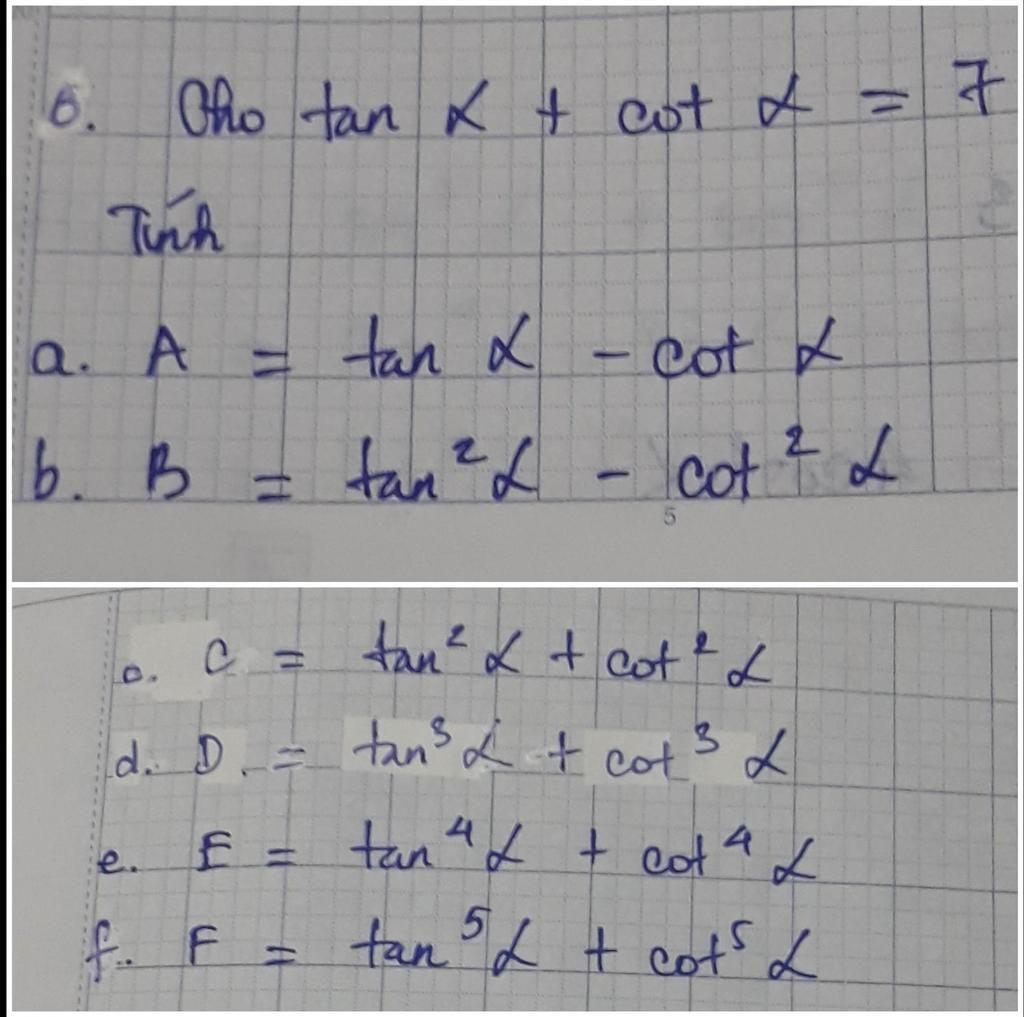 6. Cho tan α + cot α = 7
Tính
a. A = tan α - cot α
b. B = tan² α - cot² α
5
c. C = tan² α + cot² α
d. D. = tan³ α + cot³ α
e. E = tan⁴ α + cot⁴ α
f. F = tan⁵ α + cot⁵ α